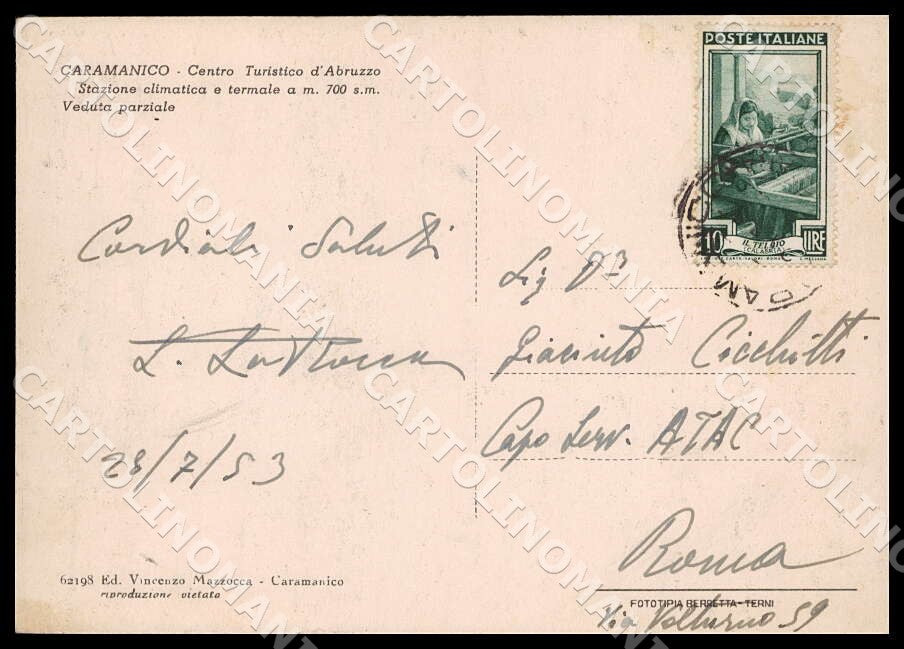 CARAMANICO - Centro Turistico d'Abruzzo
Stazione climatica e termale a m. 700 s.m.
Veduta parziale
POSTE ITALIANE
10 IL TELAIO LIRE
(CALABRIA)
Cordiali Saluti
L. La Rocca
28/7/53
Sig
Giacinto Cicchitti
Capo Serv. ATAC
Roma
Via Volturno 59
62198 Ed. Vincenzo Mazzocca - Caramanico
riproduzione vietata
FOTOTIPIA BERRETTA - TERNI
CARTOLINOMANIA
CARTOLINOMANIA
CARTOLINOMANIA
CARTOLINOMANIA
CARTOLINOMANIA
CARTOLINOMANIA